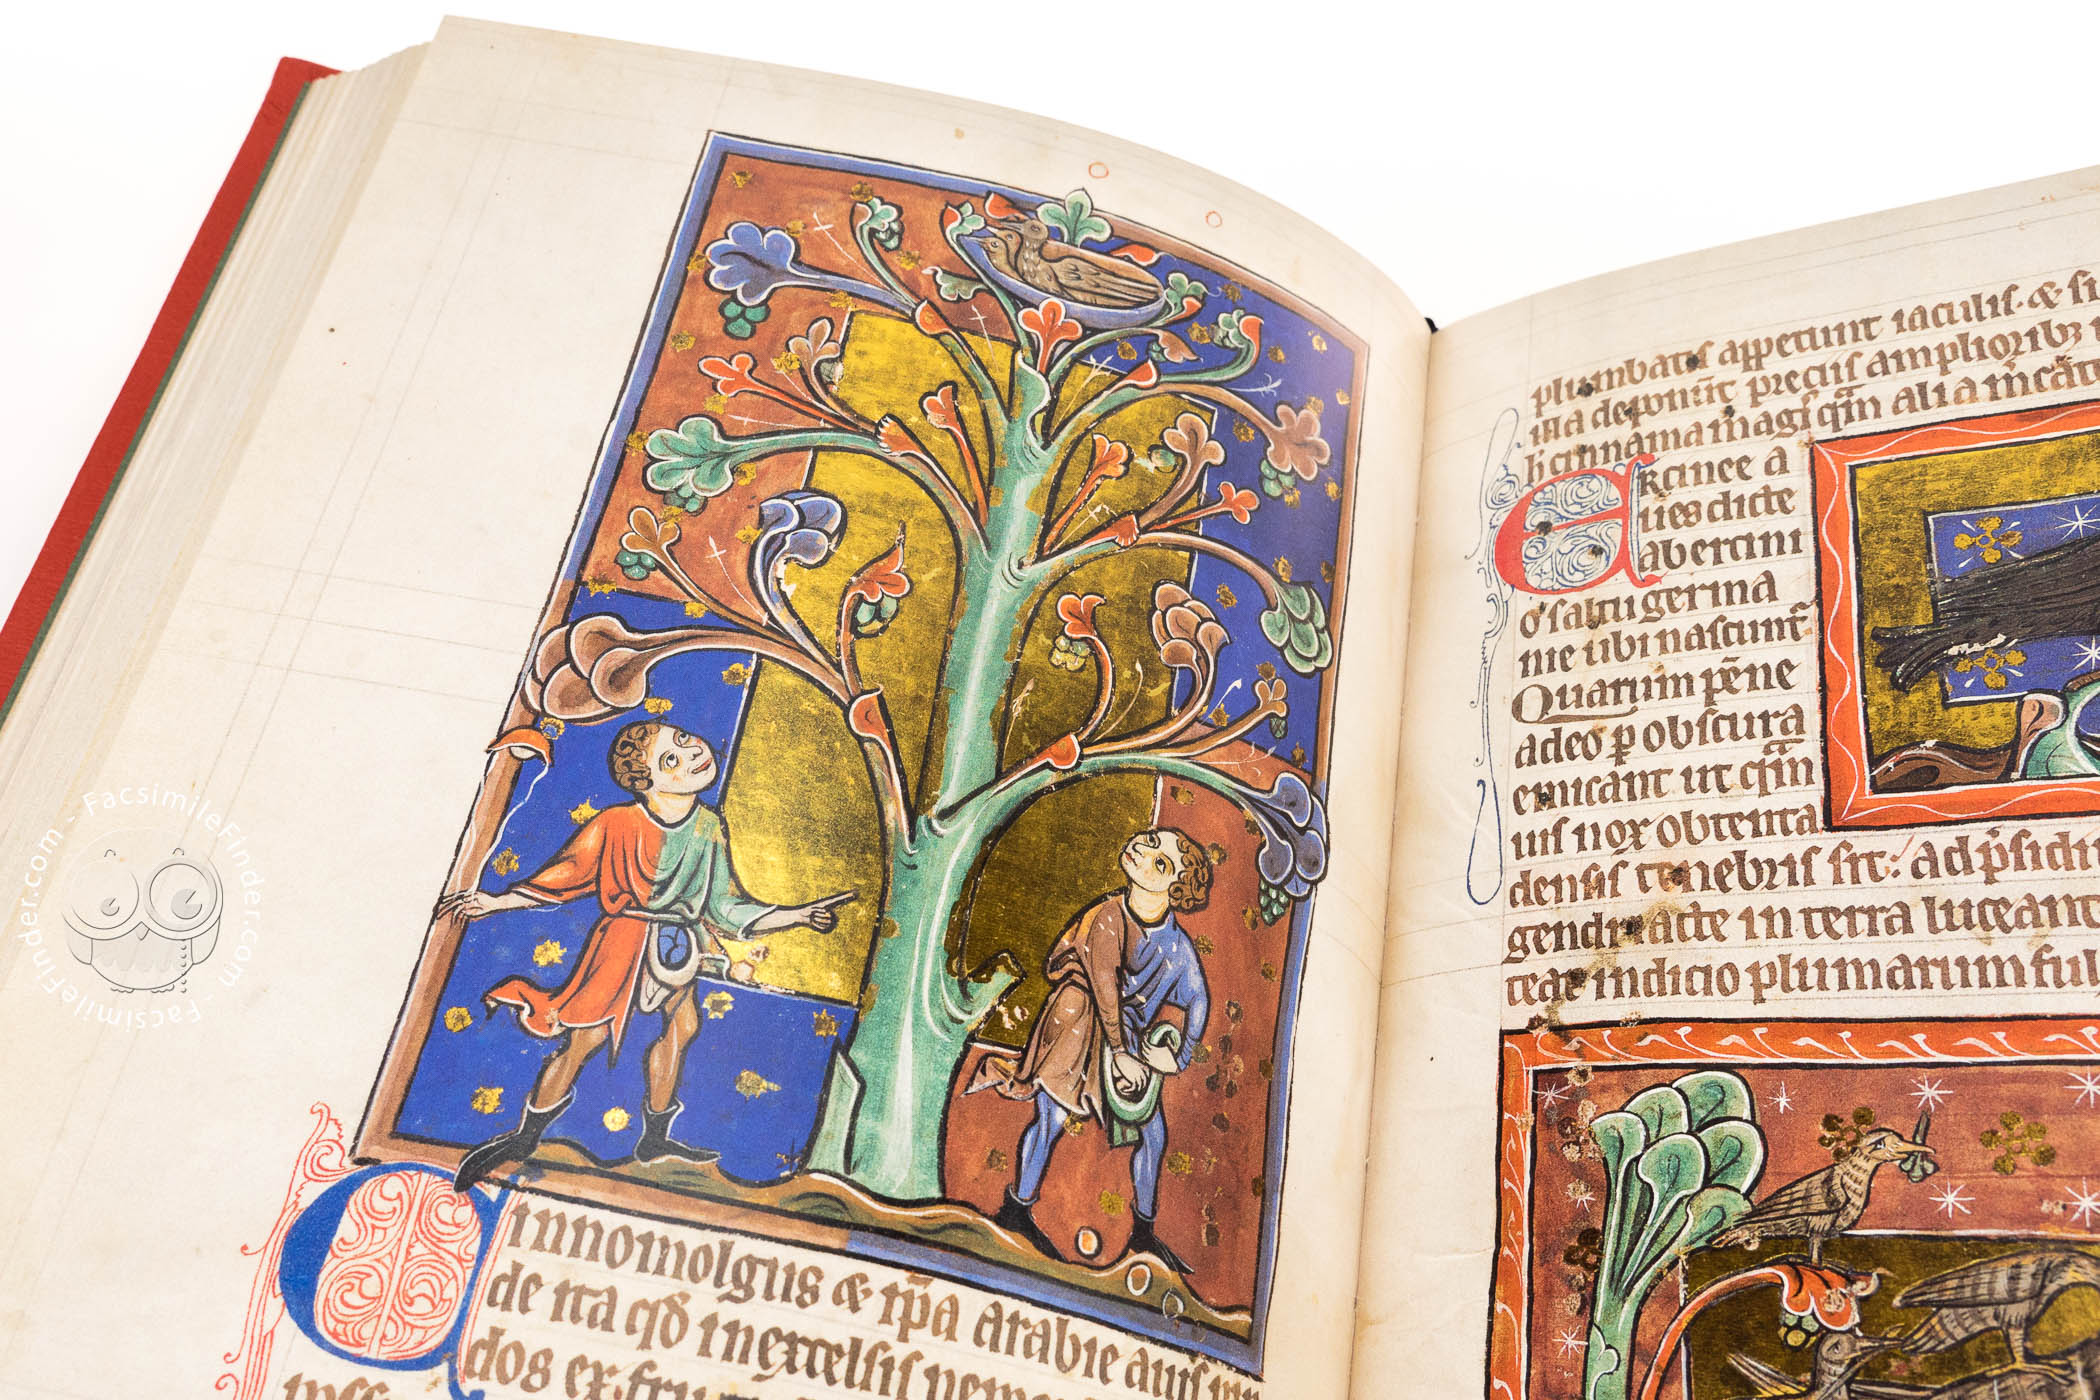 Cinnomolgus & ip̄a arabie auis
de ita qđ in excelsis nemo
dos ex fru
plumbatis appetunt iaculis. & si
illa deponūt precijs amplioribȝ
h̄ cinnama magis q̄m alia m̄cāt
ERcinee a
ues dicte
ab ercini
o saltu germa
nie ubi nascunt᷑
Quarum pēne
adeo ꝑ obscura
emicant ut q̄m
uis nox obtenta
densis tenebris sit: ad p̄sidi
gendi acte in terra luceant
teat indicio plumarum ful
FacsimileFinder.com - FacsimileFinder.com -